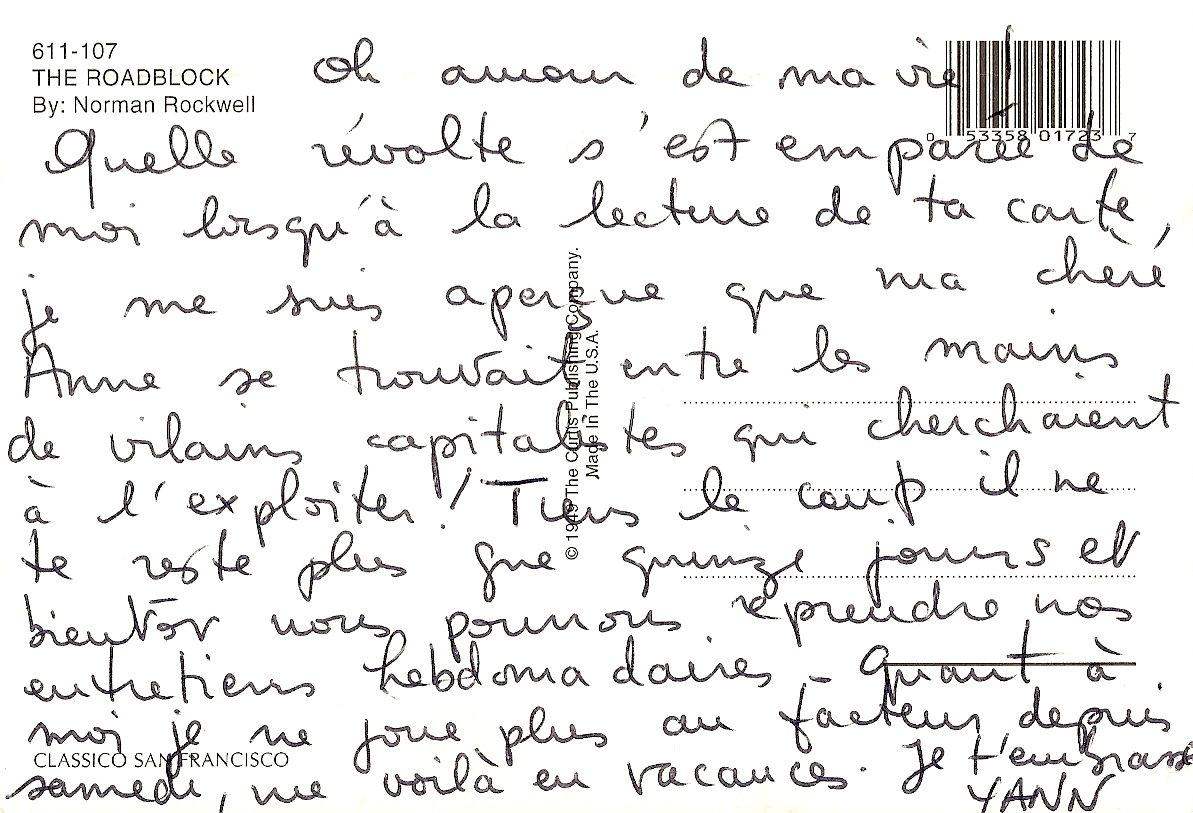 611-107
THE ROADBLOCK
By: Norman Rockwell
0 53358 01723 7
Oh amour de ma vie !
Quelle révolte s'est emparée de
moi lorsqu'à la lecture de ta carte,
je me suis aperçue que ma chère
Anne se trouvait entre les mains
de vilains capitalistes qui cherchaient
à l'exploiter ! Tiens le coup il ne
te reste plus que quinze jours et
bientôt nous pourrons reprendre nos
entretiens hebdomadaires. Quant à
moi je ne joue plus au facteur, depuis
samedi, me voilà en vacances. Je t'embrasse
YANN
© 1949 The Curtis Publishing Company.
Made In The U.S.A.
CLASSICO SAN FRANCISCO